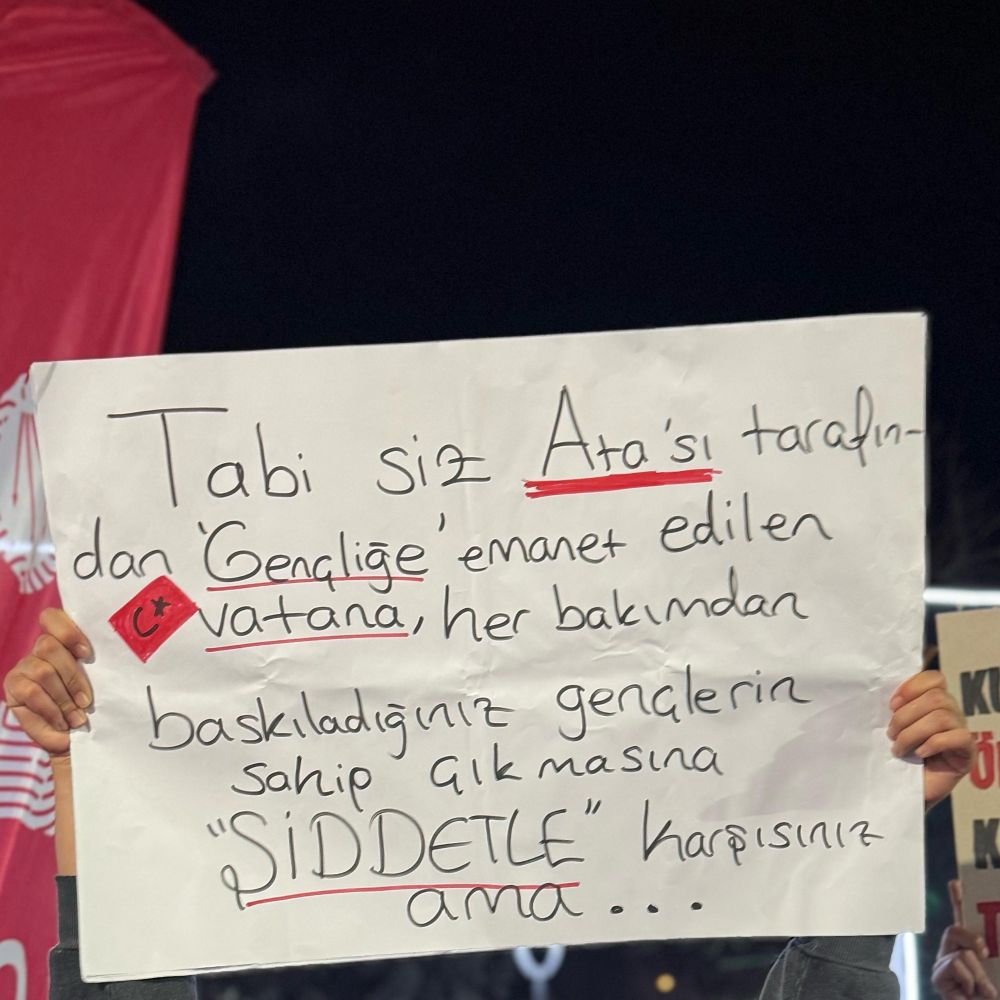 Tabi siz Ata'sı tarafın-
dan 'Gençliğe' emanet edilen
vatana, her bakımdan
baskıladığınız gençlerin
sahip çıkmasına
"ŞİDDETLE" karşısınız
ama...